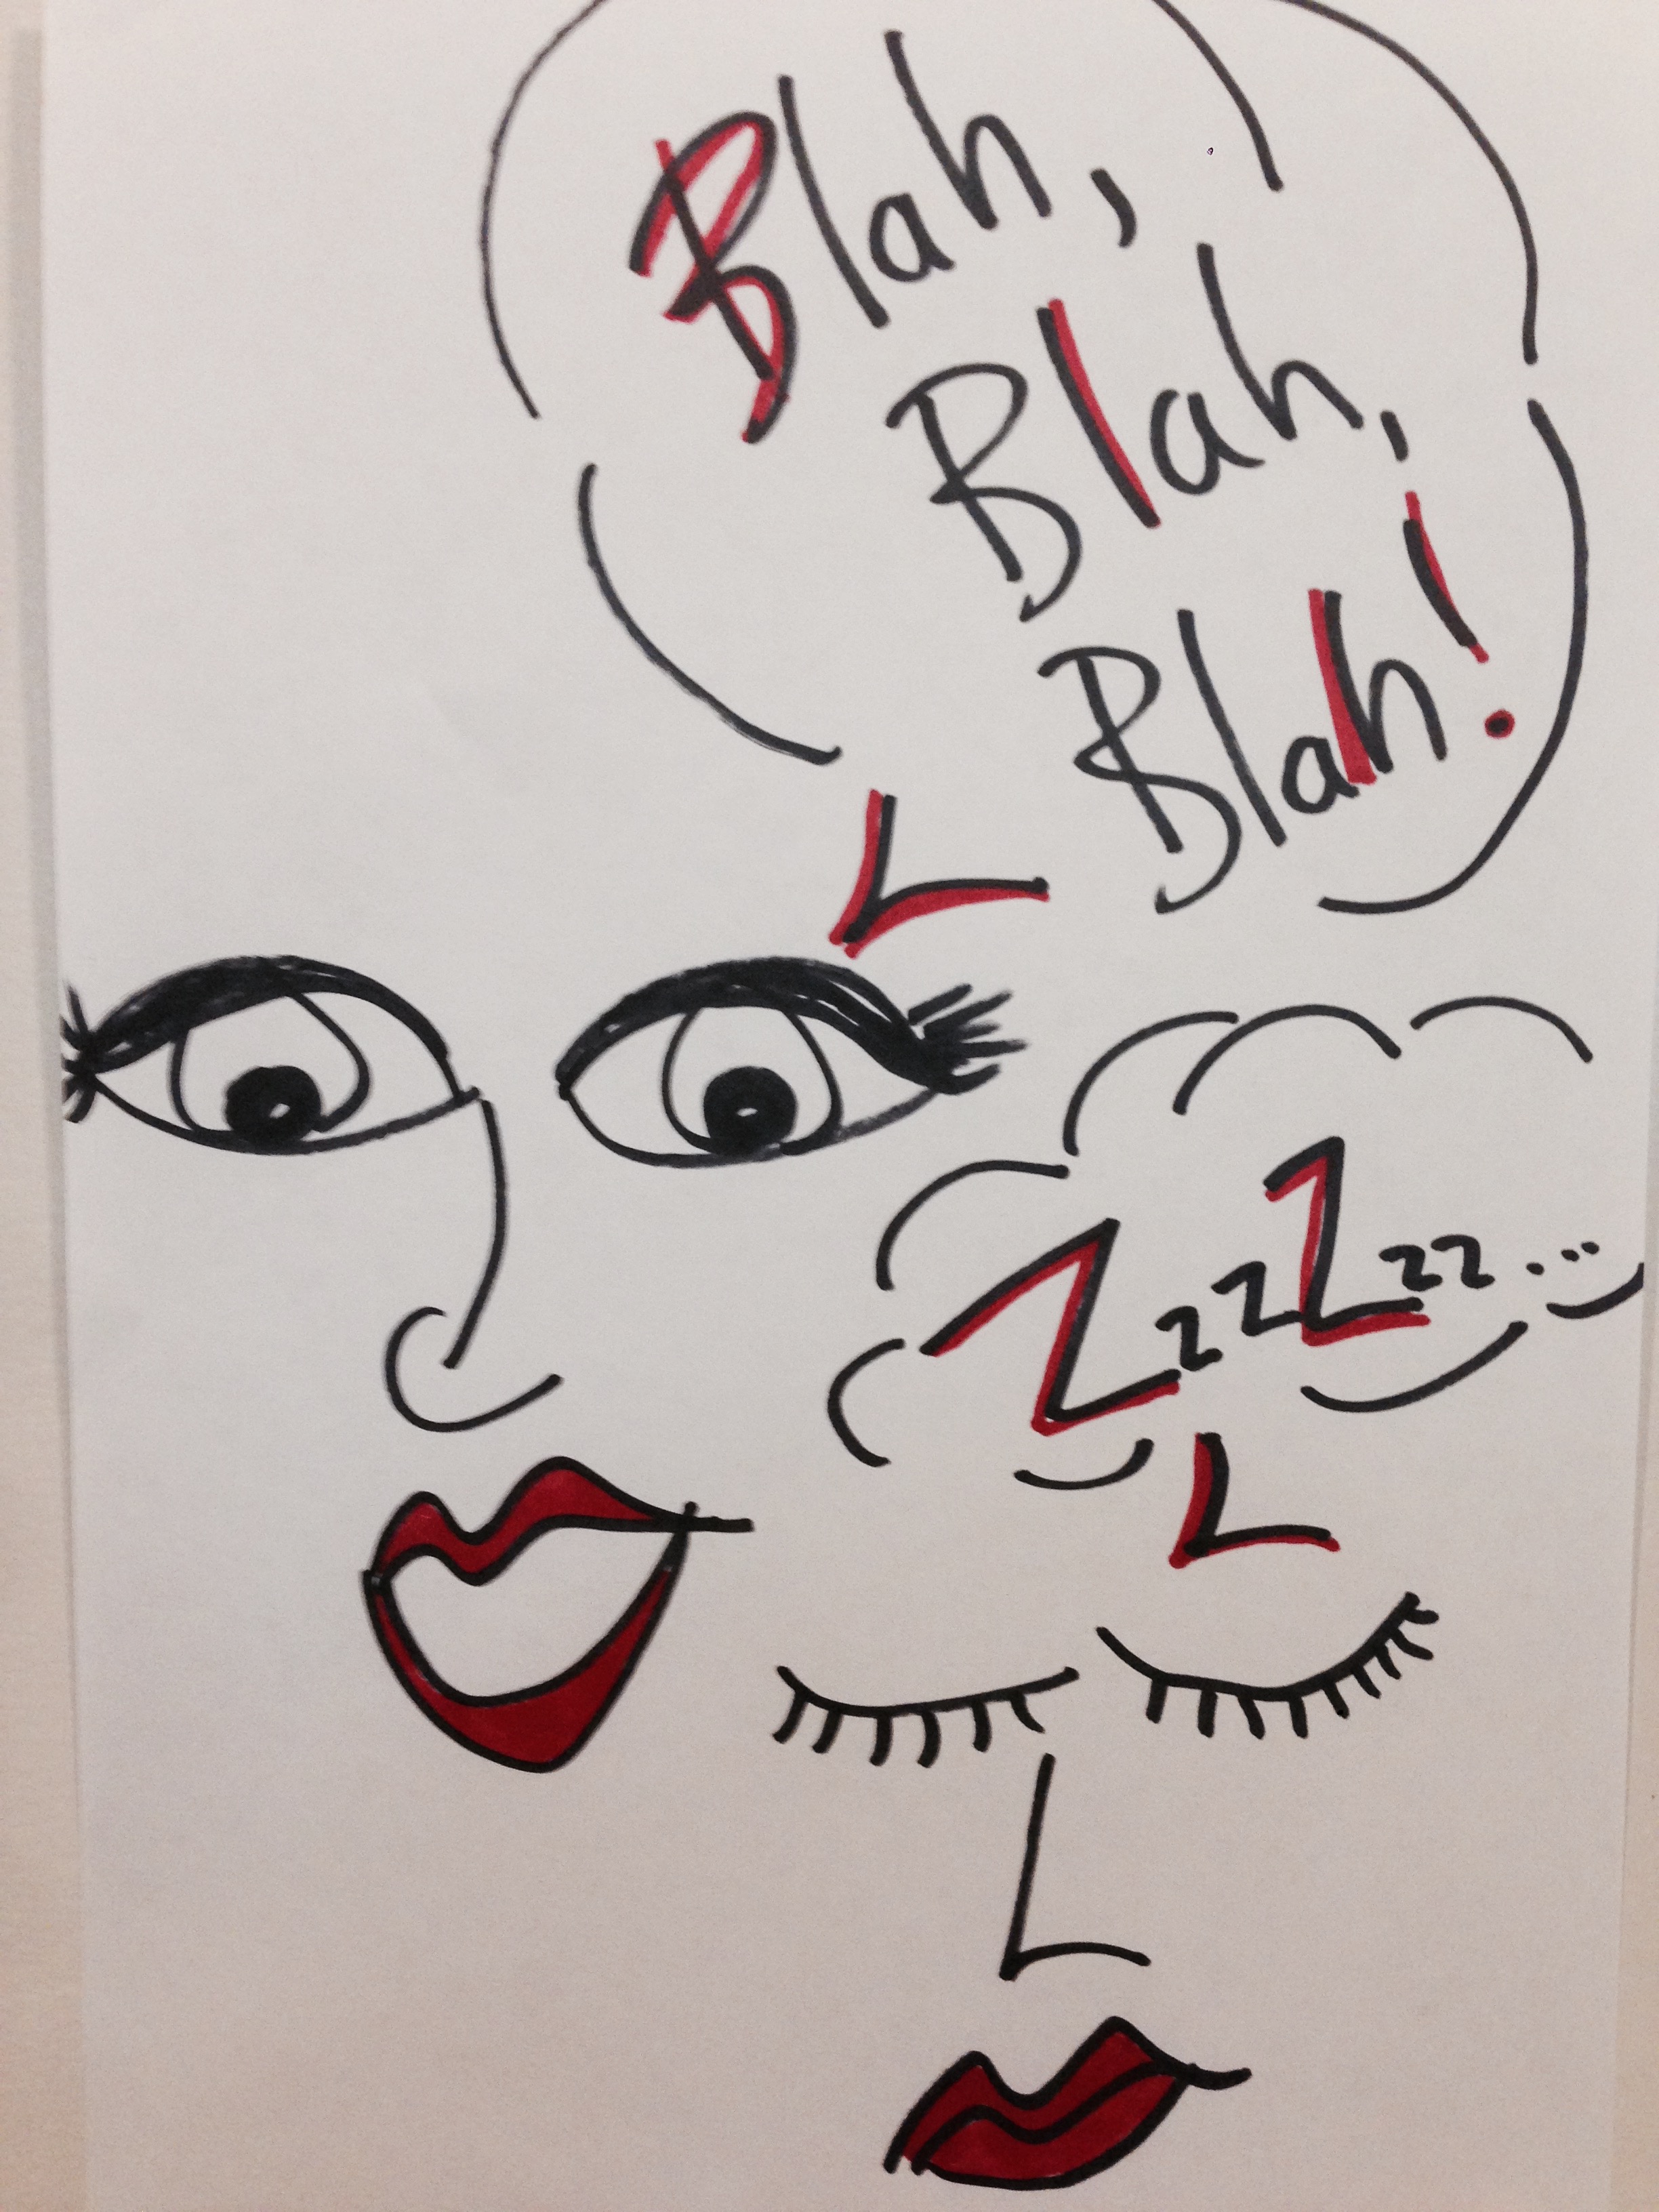 Blah,
Blah,
Blah!
ZzzZzz...